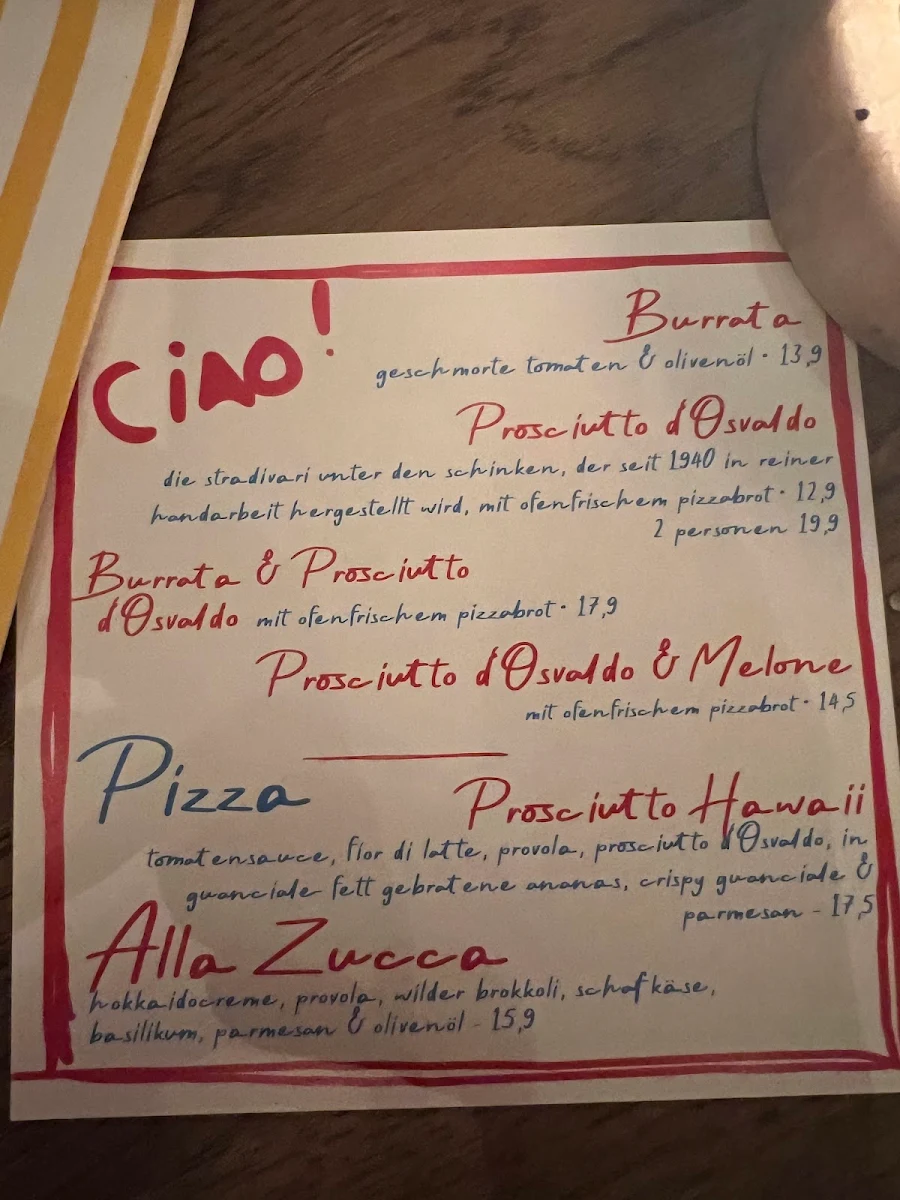 Ciao!
Burrata
geschmorte tomaten & olivenöl · 13,9
Prosciutto d'Osvaldo
die stradivari unter den schinken, der seit 1940 in reiner
handarbeit hergestellt wird, mit ofenfrischem pizzabrot · 12,9
2 personen 19,9
Burrata & Prosciutto
d'Osvaldo mit ofenfrischem pizzabrot · 17,9
Prosciutto d'Osvaldo & Melone
mit ofenfrischem pizzabrot · 14,5
Pizza
Prosciutto Hawaii
tomatensauce, fior di latte, provola, prosciutto d'Osvaldo, in
guanciale fett gebratene ananas, crispy guanciale &
parmesan - 17,5
Alla Zucca
hokkaidocreme, provola, wilder brokkoli, schafkäse,
basilikum, parmesan & olivenöl - 15,9